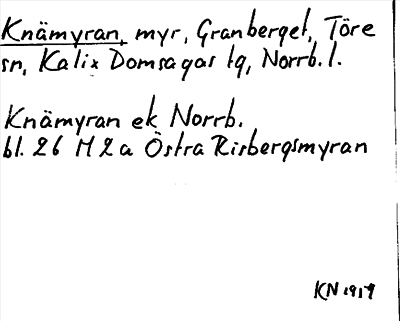 Knämyran, myr, Granberget, Töre
sn, Kalix Domsagas tg, Norrb. l.
Knämyran ek Norrb.
bl. 26 H 2 a Östra Risbergsmyran
KN 1917